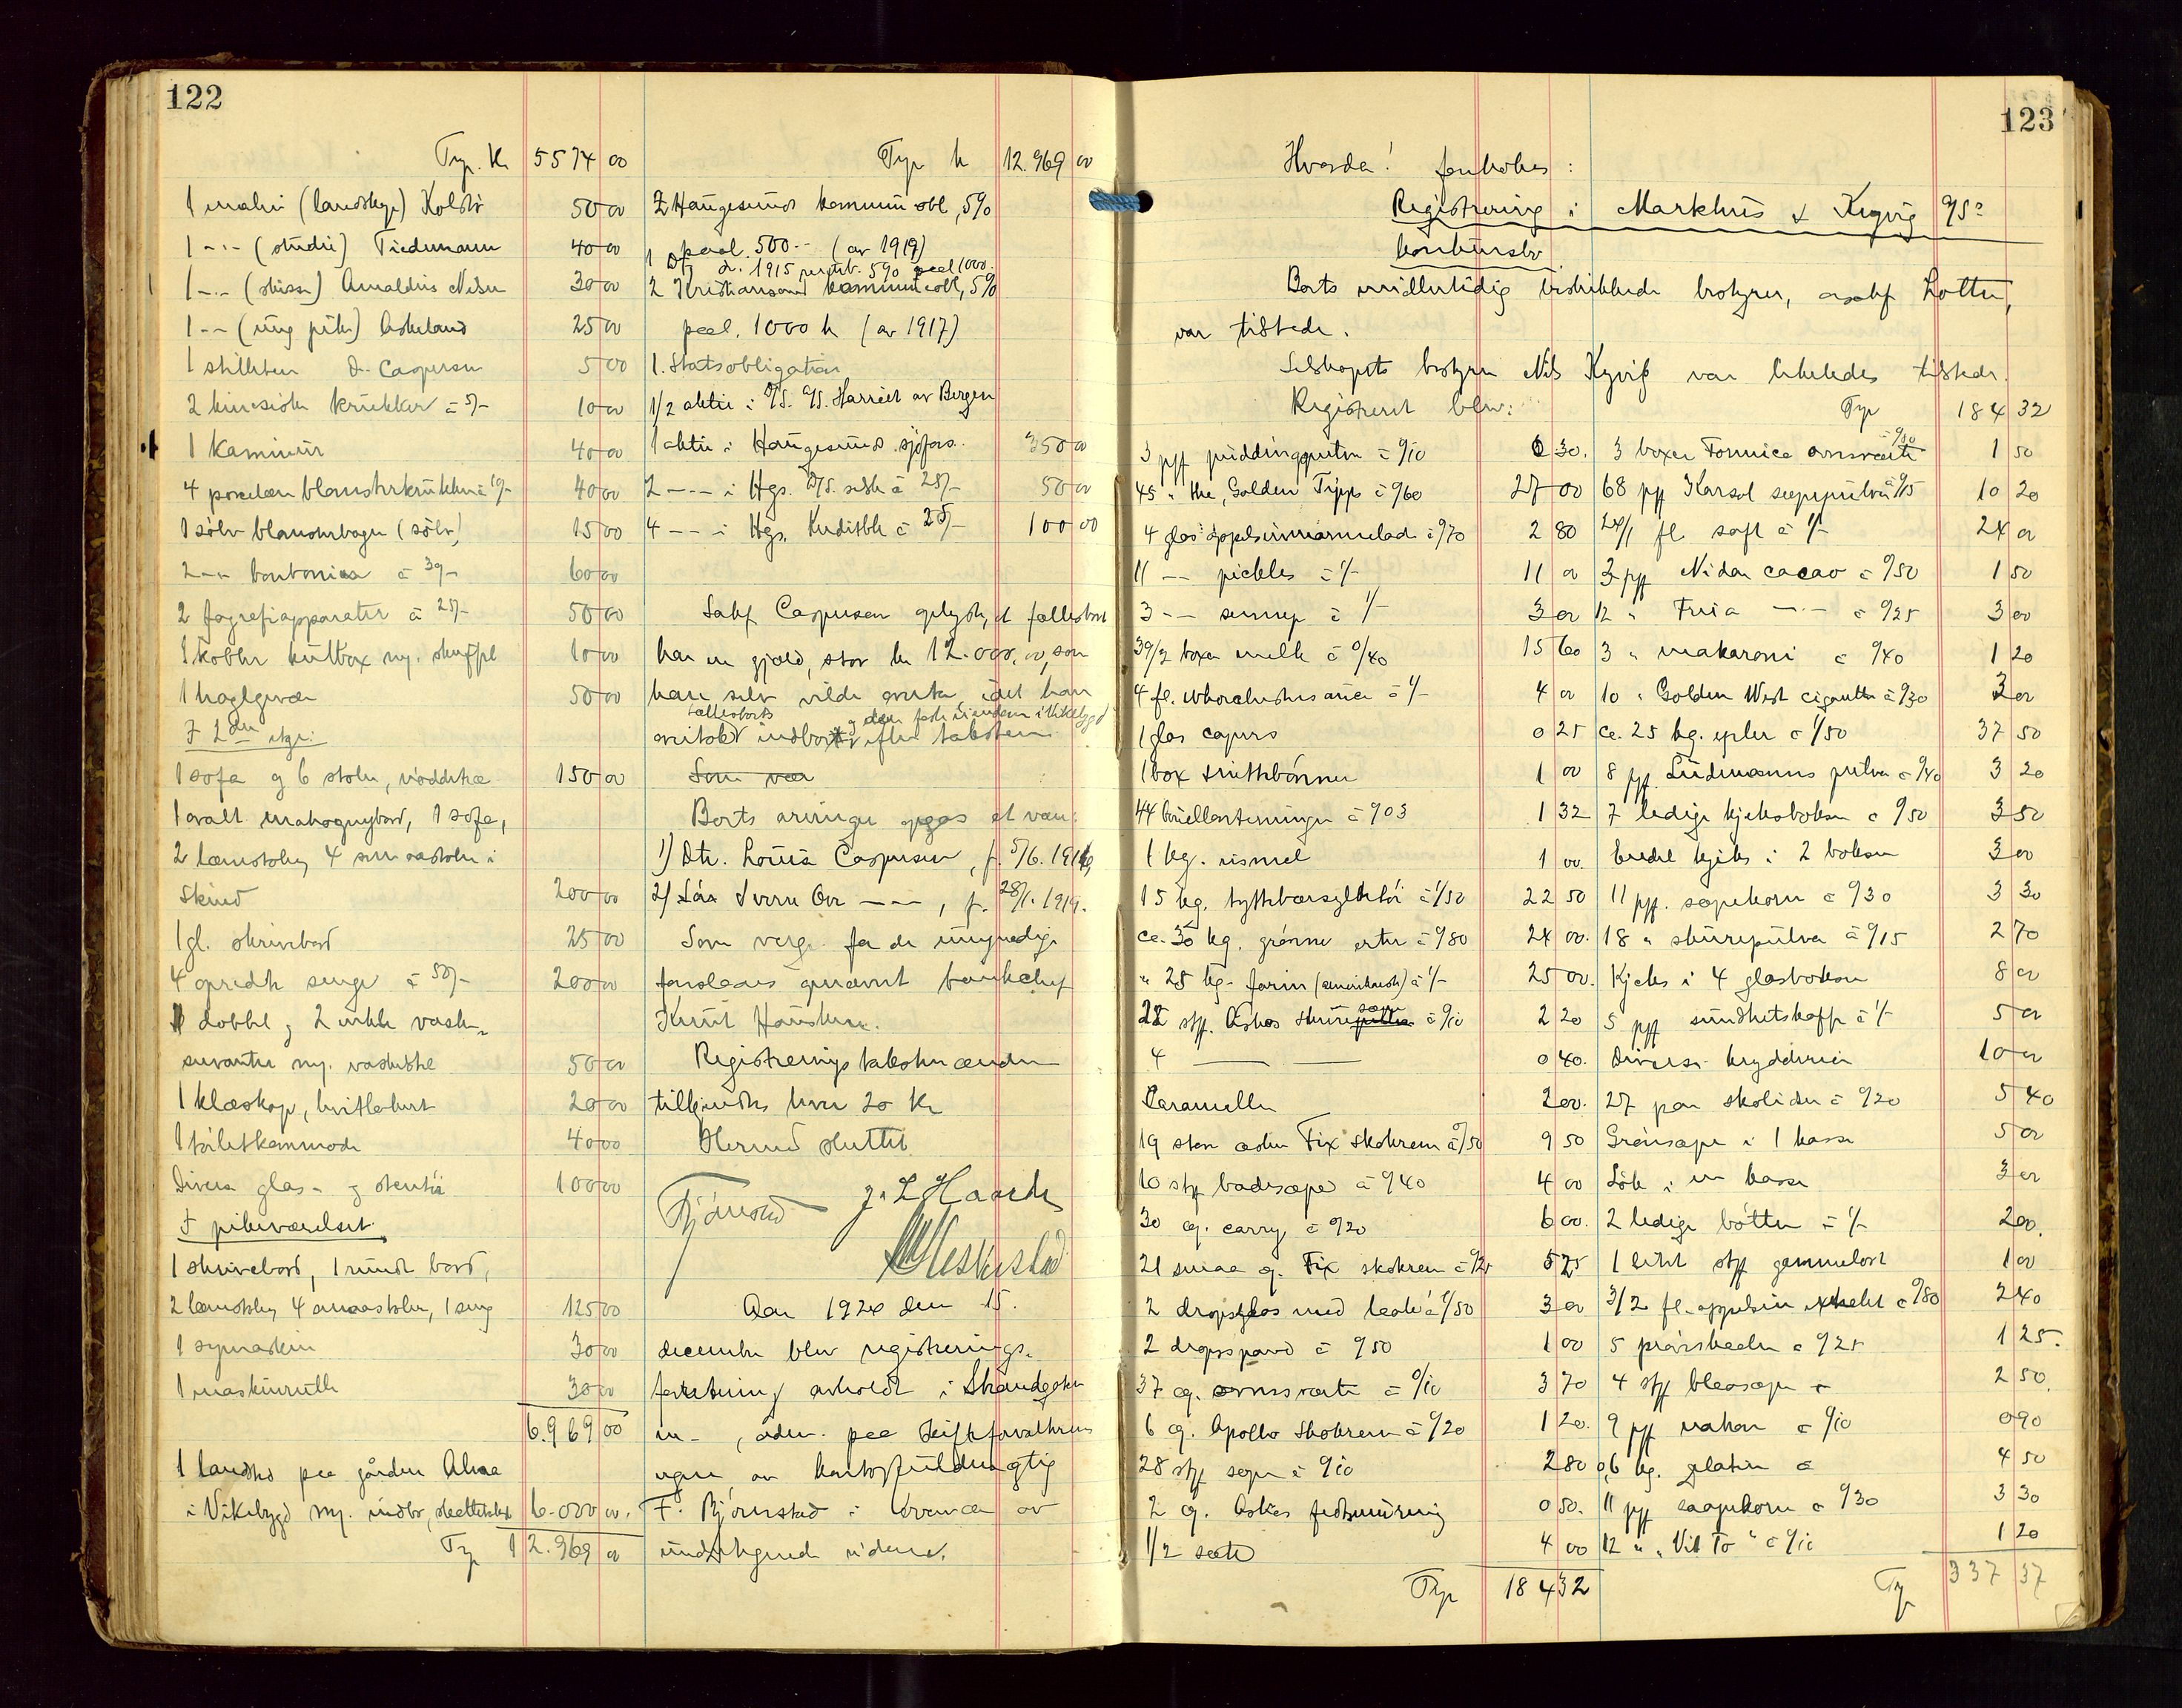 122
Trp. Kr 5574 00
1 maleri (landskap) Koldrö 50 00
1 -"- (studie) Tiedemann 40 00
1 -"- (skisse) Amaldus Nilsen 30 00
1 -"- (ung pike) Askeland 25 00
1 stilleben d. Caspersen 5 00
2 kinesiske krukker à 5/- 10 00
1 Kaminur 40 00
4 porcelæn blomsterkrukker à 10/- 40 00
1 sølv blomsterbæger (sølv) 15 00
2 -"- bonbonniera à 30/- 60 00
2 fografiapparater à 25/- 50 00
1 kobber kulbox m. skuffel 10 00
1 haglgevær 50 00
I 2den etge:
1 sofa og 6 stoler, röddtræ 150 00
1 ovalt mahognybord, 1 sofa,
2 lænstoler, 4 smaastoler i
skind 200 00
1 gl. skrivebord 25 00
4 opredte senge à 50/- 200 00
1 dobbel og 2 enkle vaske-
servanter m. vaskestel 50 00
1 klæskap, hvitlakert 20 00
1 toiletkommode 40 00
Diverse glas- og stentöi 100 00
I pikeværelset.
1 skrivebord, 1 rundt bord,
2 lænstoler, 4 smaastoler, 1 seng 125 00
1 symaskin 30 00
1 maskinrulle 30 00
6.969 00
1 landsted paa gården Alnæ
i Vikebygd m. indbo, skattetakst 6.000 00.
Trp 12.969 00
Trp kr 12.969 00
2 Haugesunds kommun obl, 5%
paal. 500.- (av 1919)
1 d. 1915 5% paal 1000.
2 Kristiansand kommune obl, 5%
paal. 1000 kr (av 1917)
1. Statsobligation
1/2 aktie i D/S. A/S. Harriet av Bergen
1 aktie i Haugesunds sjöfors. 350 00
2 -"- i Hgs. D/S. selsk à 25/- 50 00
4 -"- i Hgs. Kreditbk à 25/- 100 00
Sakf Caspersen oplyste, at fællesboet
har en gjæld, stor kr 12.000.00, som
han selv vilde overta, idet han
fællesboets og den faste eiendom i Vikebygd
overtok indbo efter taksten.
Som vær
Boets arvinger opgas at være:
1) Dtr. Louisa Caspersen, f. 5/6. 1916,
2) Sön Sverre Ovr -"-, f. 28/1. 1919.
Som verge for de umyndige
foreslaaes opnævnt bankchef
Knut Hauske.
Registreringstakstmændene
tilkjendtes hver 20 Kr
Dermed sluttet
Bjørnstad J. L. Haaeth
M Meskestad
Aar 1924 den 15.
december blev registrerings-
forretning avholdt i Strandgaten
nr - , den paa skifteforvalterens
vegne av kontorfuldmægtig
F. Bjørnstad i nærvær av
undertegnede vidner.
123
Hvorda! forhohes:
Registrering i Markhus & Kyvig A/S:
konkursbo
Boets midlertidig beskikkede bestyrer, orsakf Lotte,
var tilstede.
Selskapets bestyrer Nils Kyvig var likeledes tilstede.
Registrert blev: Trp 184 32
3 ppf puddingpulver à 0/10 0 30.
45 " the, Golden Tipps à 0/60 27 00
4 glas appelsinmarmelade à 0/70 2 80
11 -"- pickles à 1/- 11 00
3 -"- sennep à 1/- 3 00
39/2 boxer melk à 0/40 15 60
4 fl. Whorchestersauce à 1/- 4 00
1 glas capers 0 25
1 box snittebönner 1 00
44 bouillonterninger à 0/03 1 32
1 kg. rismel 1 00.
15 kg. tyttebærsyltetöi à 1/50 22 50
ca. 30 kg. grönne erter à 0/80 24 00.
" 25 kg. farin (amerikansk) à 1/- 25 00.
22 stp. Askos skurepulver sæpe à 0/10 2 20
4 -"- 0 40.
Karameller 2 00.
19 store æsker Fix skokrem à 0/50 9 50
10 stp badesæpe à 0/40 4 00
30 æ. carry à 0/20 6 00.
21 smaa æ. Fix skokrem à 0/25 5 25
2 dropsglas med laak à 1/50 3 00
2 dropsspand à 0/50 1 00
37 æ. ovnsværte à 0/10 3 70
6 æ. Apollo skokrem à 0/20 1 20.
28 stp sæpe à 0/10 2 80
2 æ. Askos fedtsmurning 0 50.
1/2 sæk 4 00
Trp 184 32
3 boxer Fonnica ovnsværte à 0/50 1 50
68 pp Karsol sæpepulver à 0/15 10 20
24/1 fl. saft à 1/- 24 00
3 pp Nidar cacao à 0/50 1 50
12 " Freia -"- à 0/25 3 00
3 " makaroni à 0/40 1 20
10 " Golden West cigaretter à 0/30 3 00
ca. 25 kg. epler à 1/50 37 50
8 pp. Lüdemanns pulver à 0/40 3 20
7 ledige kjeksbokser à 0/50 3 50
endel kjeks i 2 bokser 3 00
11 pp. sæpekorn à 0/30 3 30
18 " skurepulver à 0/15 2 70
Kjeks i 4 glasbokser 8 00
5 pp sundhetskaffe à 1/- 5 00
Diverse krydderier 10 00
27 par skolisser à 0/20 5 40
Grönsæpe i 1 kasse 5 00
Lök i en kasse 3 00
2 ledige bötter à 1/- 2 00.
1 litet stp gammelost 1 00
3/2 fl. appelsin extrakt à 0/80 2 40
5 à 0/25 1 25.
4 stp blaasæpe à 2 50
9 pp à 0/10 0 90
0,6 kg. gelatin à 4 50
11 pp saapekorn à 0/30 3 30
12 " "Vil To" à 0/10 1 20
Trp 337 37